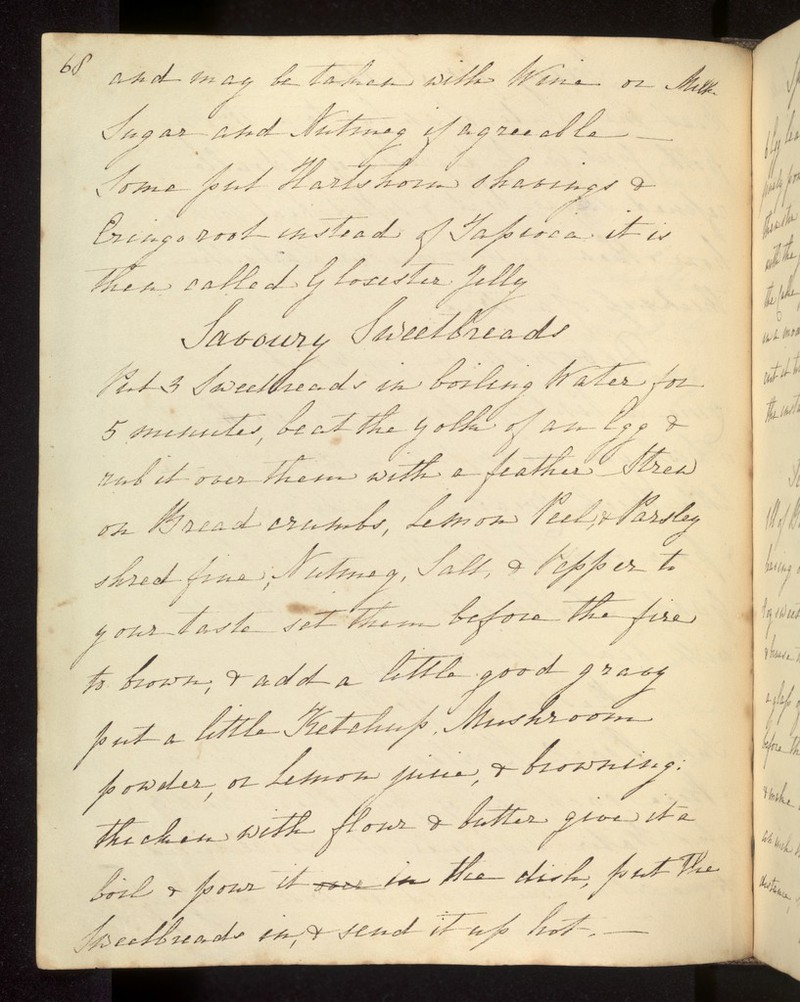 68
and may be taken with Wine or Milk
Sugar and Nutmeg if agreeable —
Some put Hartshorn shavings &
Eringo root instead of Tapioca it is
then called Glocester Jelly
Savoury Sweetbreads
Put 3 Sweetbreads in boiling Water for
5 minutes, beat the yolk of an Egg &
rub it over them with a feather Strew
on Bread crumbs, Lemon Peel, & Parsley
shred fine, Nutmeg, Salt, & Pepper to
your taste set them before the fire
to brown, & add a little good gravy
put a little Ketchup, Mushroom
powder, or Lemon juice, & browning:
thicken with flour & butter give it a
boil & pour it in the dish, put The
Sweetbreads in, & send it up hot. —